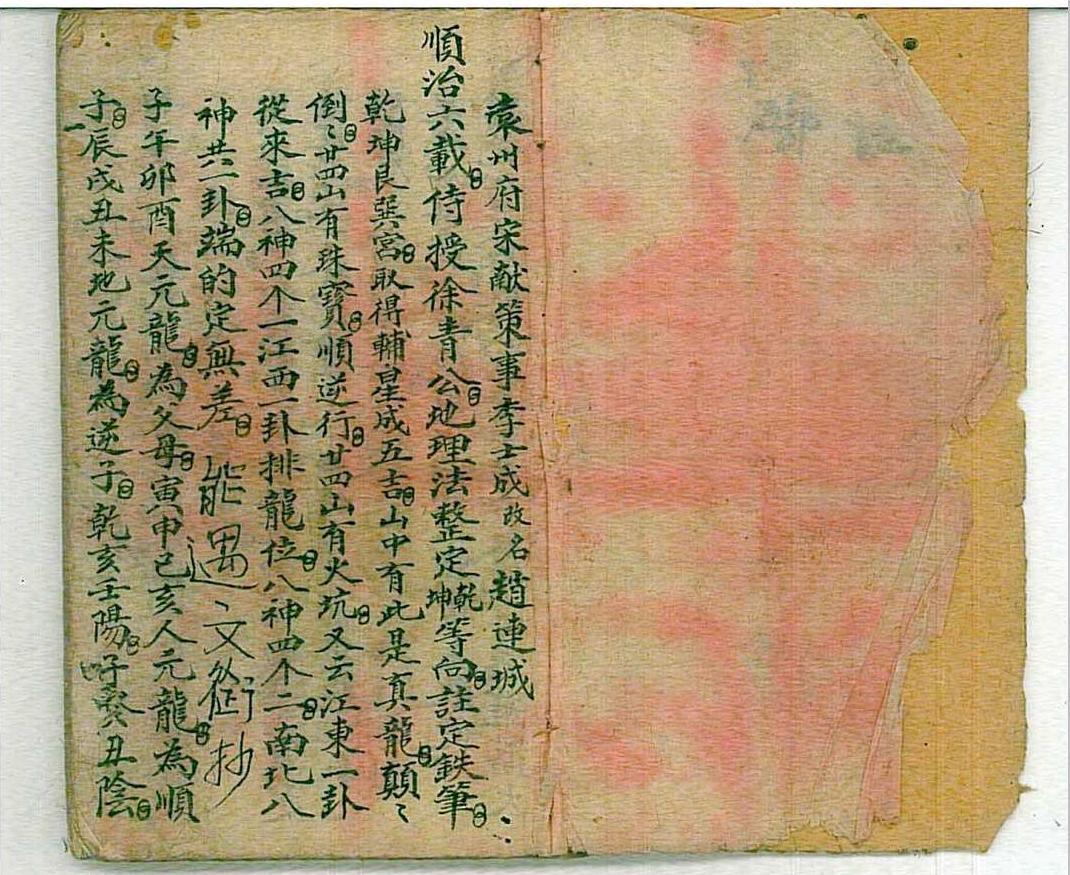 袁州府宋献策事李士成改名趙連城
順治六載侍授徐青公地理法整定乾坤等向註定鉄筆
乾坤艮巽宮取得輔星成五吉山中有此是真龍顛〻
倒〻廿四山有珠寶順逆行廿四山有火坑又云江東一卦
從來吉八神四个一江西一卦排龍位八神四个二南北八
神共一卦端的定無差 能遇文衞抄
子午卯酉天元龍為父母寅申巳亥人元龍為順
子辰戌丑未地元龍為逆子乾亥壬陽子癸丑陰